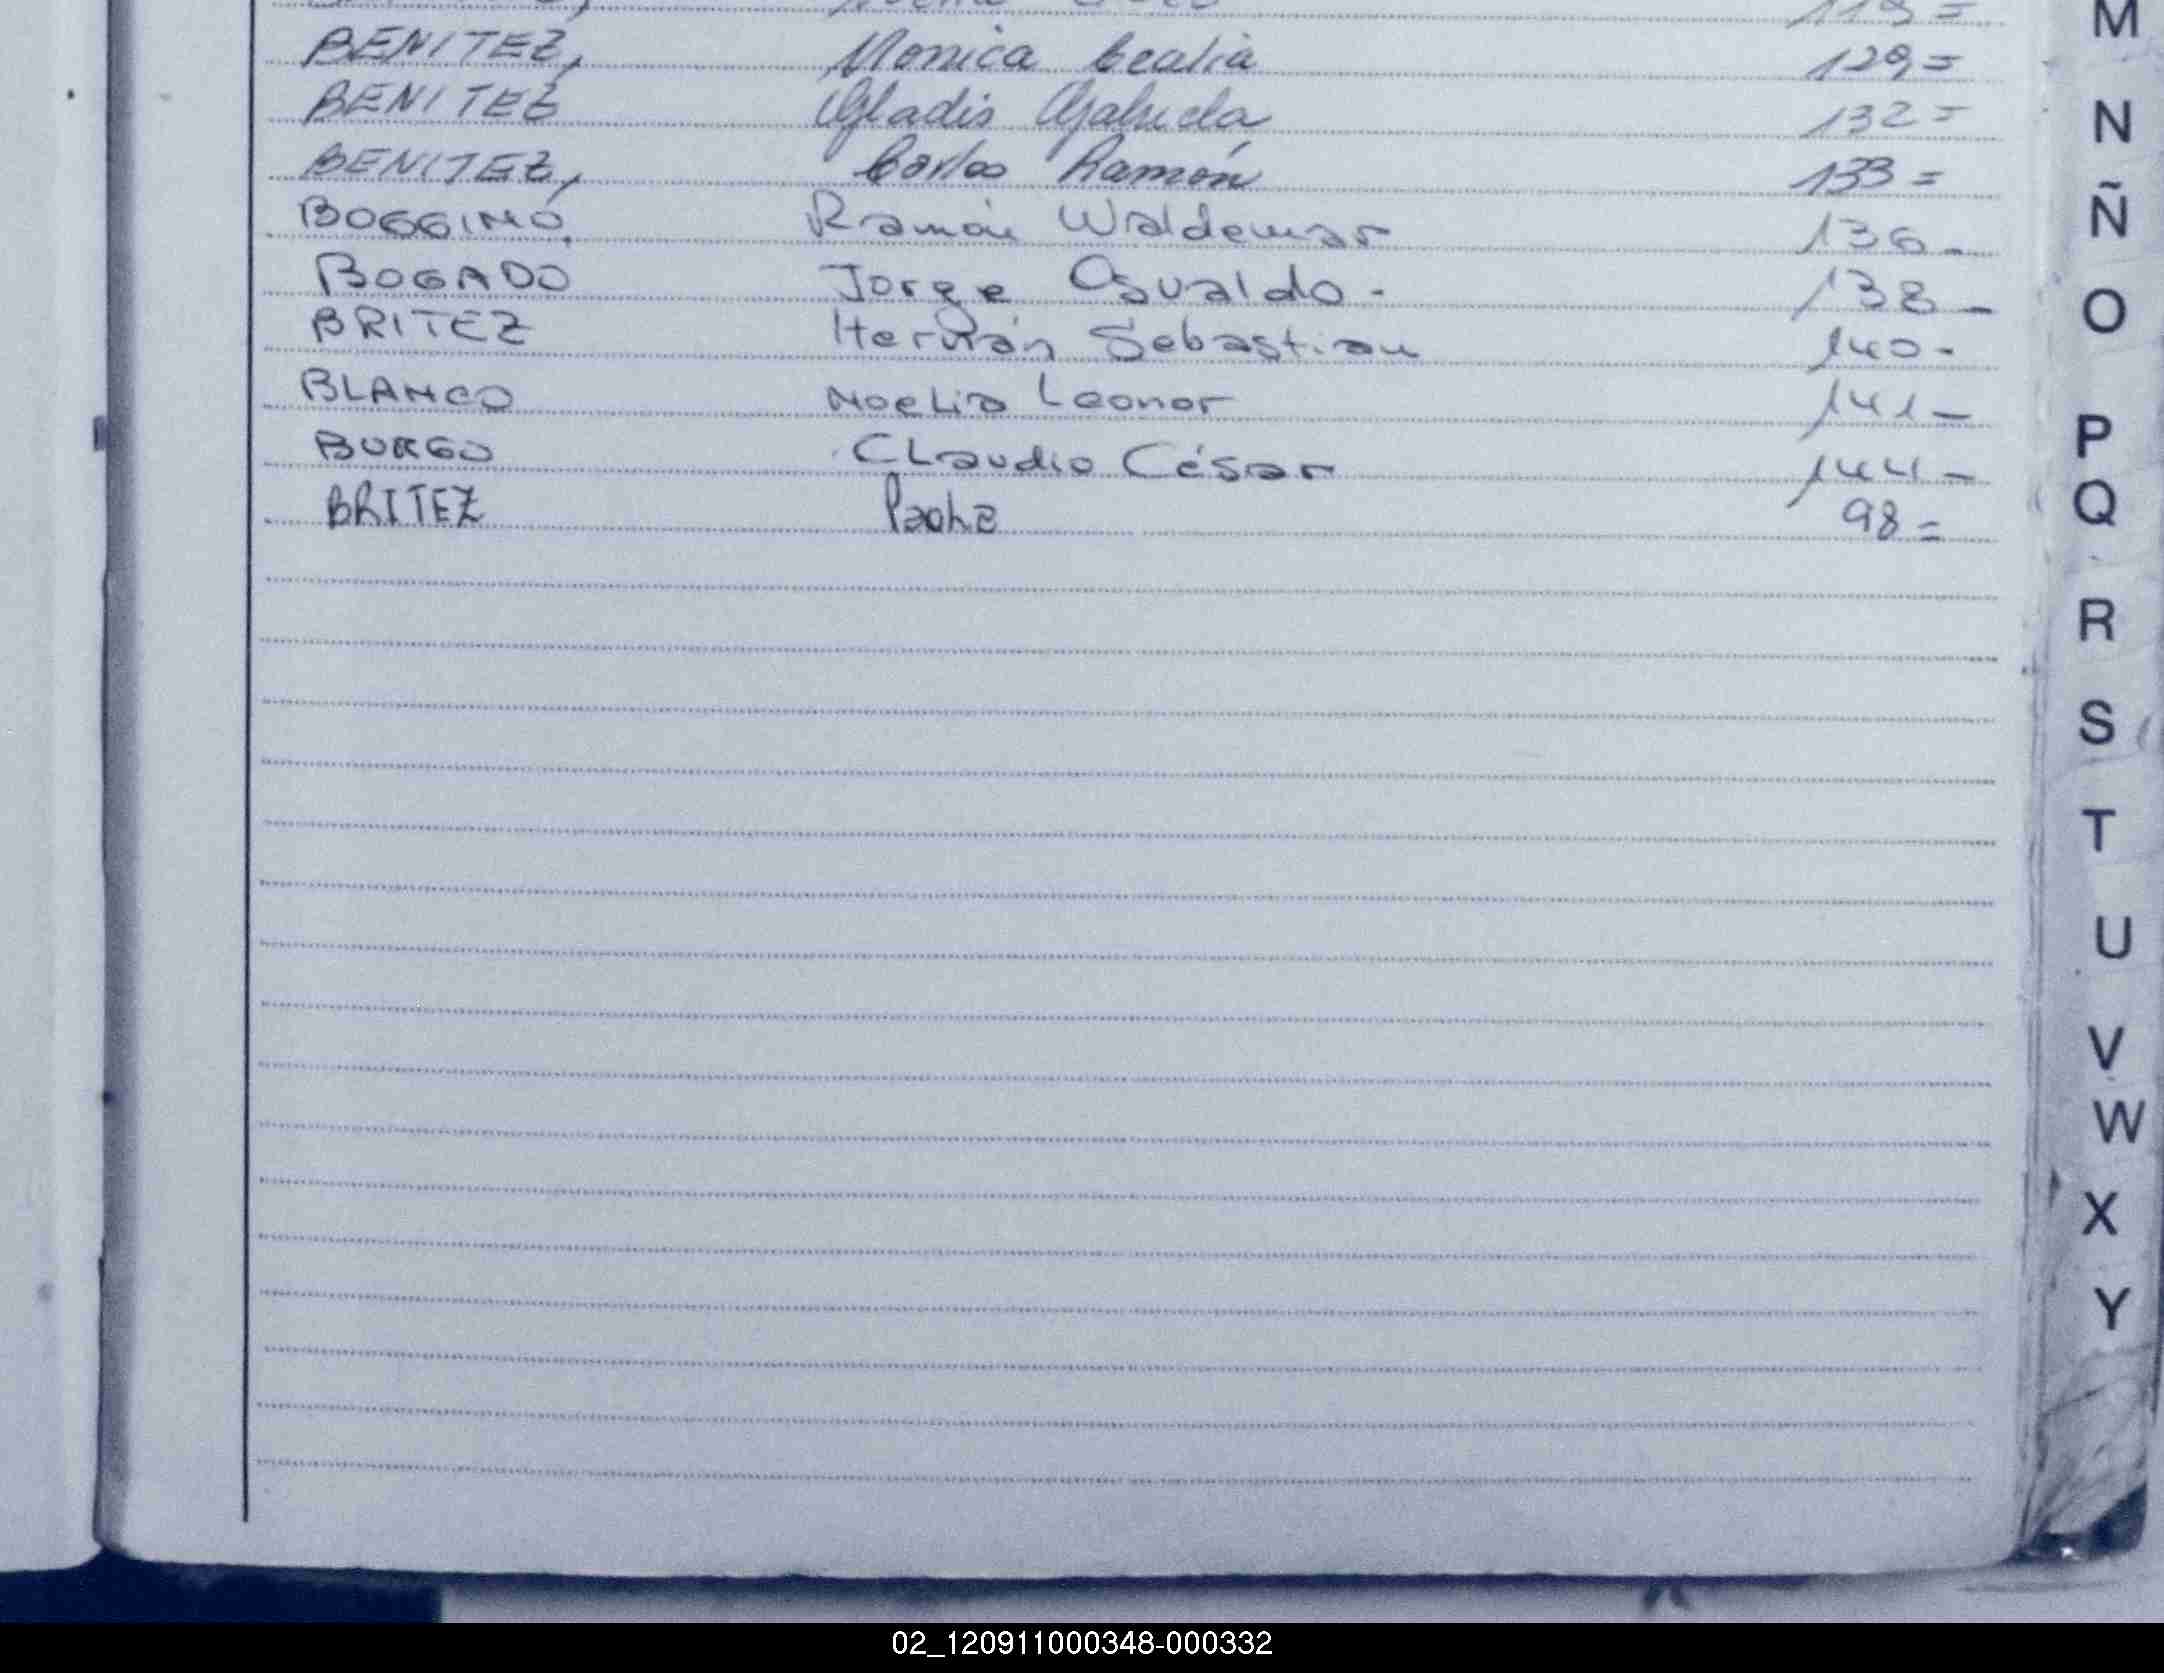 119=
BENITEZ, Monica Cecilia 129=
BENITEZ Gladis Gabriela 132=
BENITEZ, Carlos Ramón 133=
BOGGINO, Ramón Waldemar 136-
BOGADO Jorge Osvaldo.- 138-
BRITEZ Hernán Sebastian 140-
BLANCO Noelia Leonor 141-
BURGO Claudio César 144-
BRITEZ Paola 98=
M
N
Ñ
O
P
Q
R
S
T
U
V
W
X
Y
02_120911000348-000332